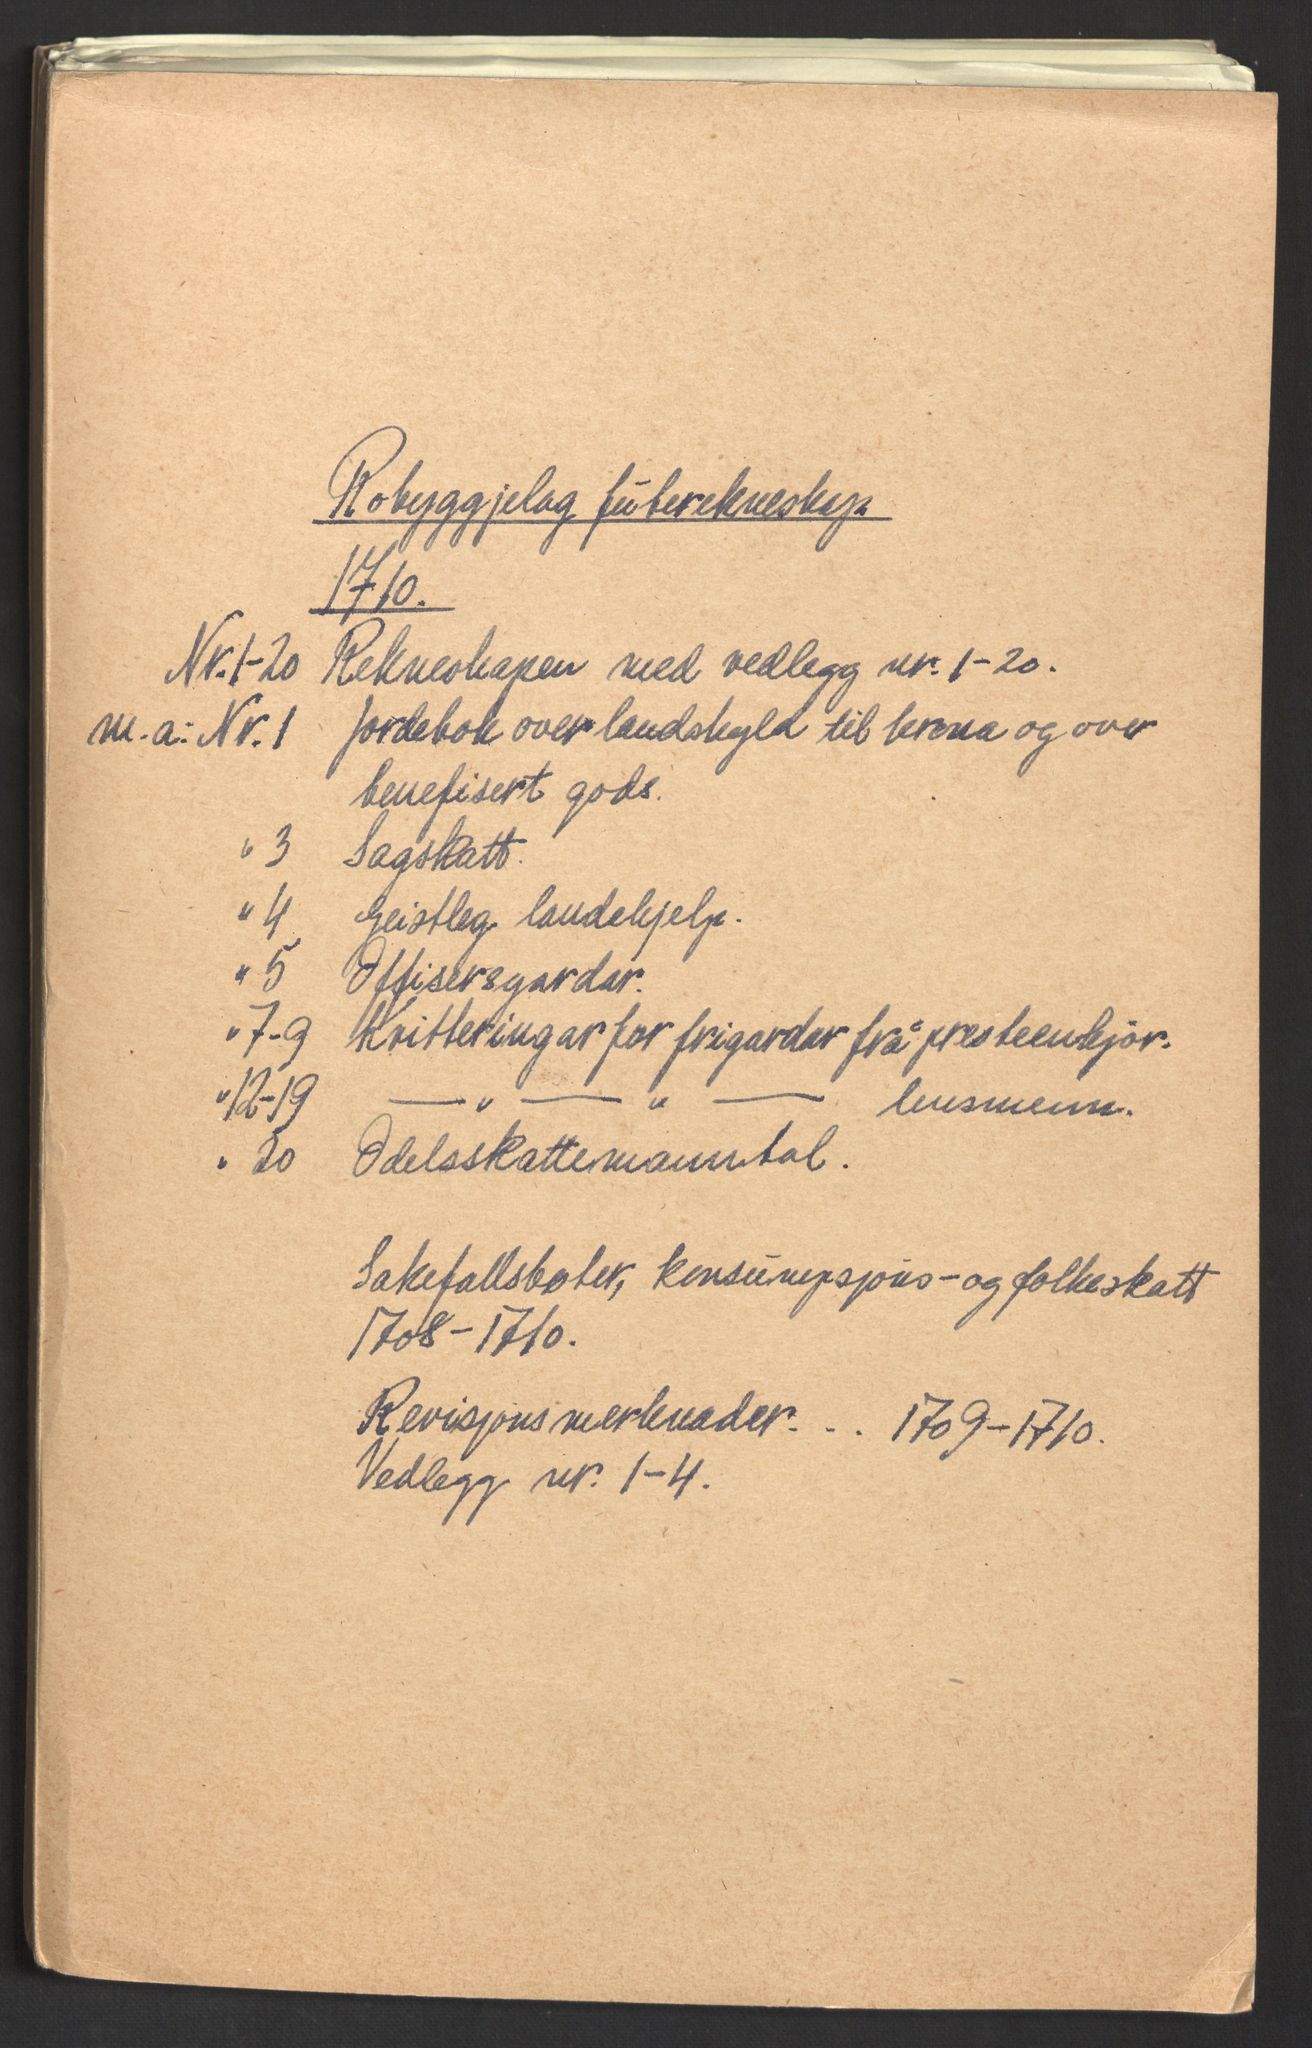 Robyggjelag futerekneskap
1710.
Nr. 1-20 Rekneskapen med vedlegg nr. 1-20.
m.a: Nr. 1 Jordebok over landskyld til krona og over
benefisert gods.
" 3 Sagskatt.
" 4 Geistleg landehjelp.
" 5 Offisersgardar.
" 7-9 Kvitteringar for frigardar frå presteenkjor.
" 12-19 — " — " — lensmenn.
" 20 Odelsskattemanntal.
Sakefallsbøter, konsumpsjons- og folkeskatt
1708-1710.
Revisjonsmerknader... 1709-1710.
Vedlegg nr. 1-4.